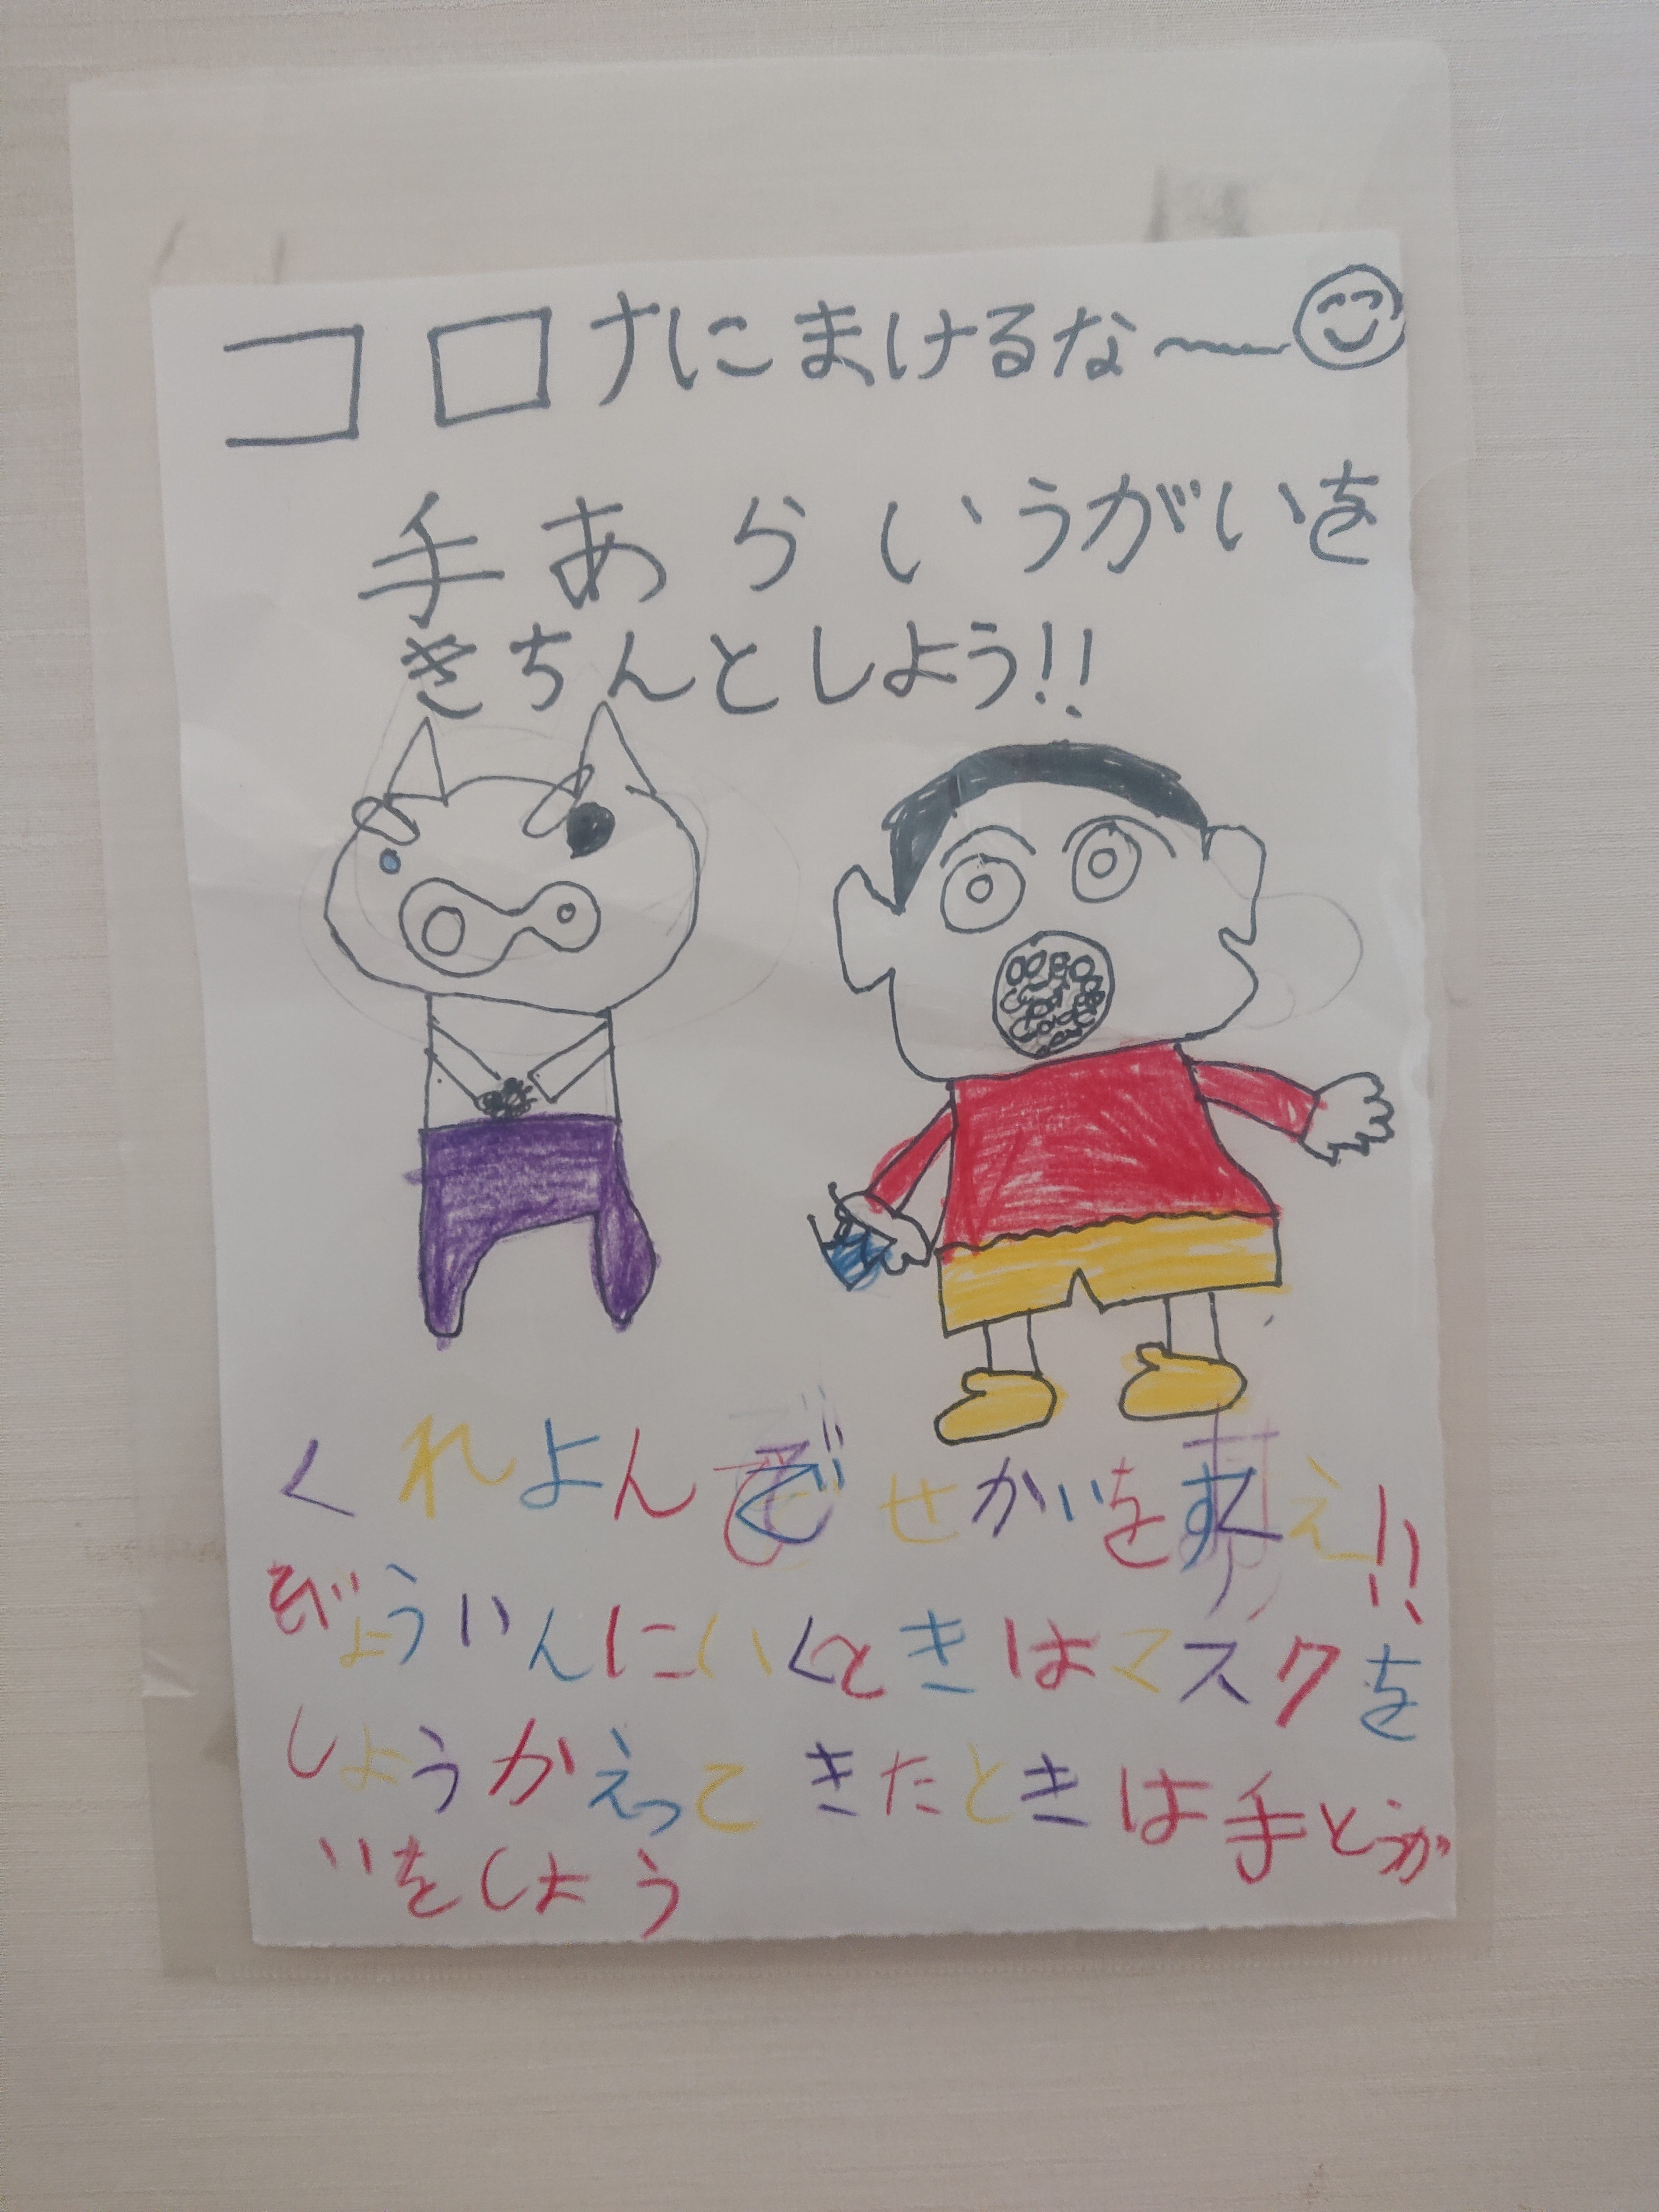 コロナにまけるな〜
手あらいうがいを
きちんとしよう!!
くれよんで せかいをすくえ!!
びょういんにいくときはマスクを
しようかえってきたときは手とうが
いをしよう